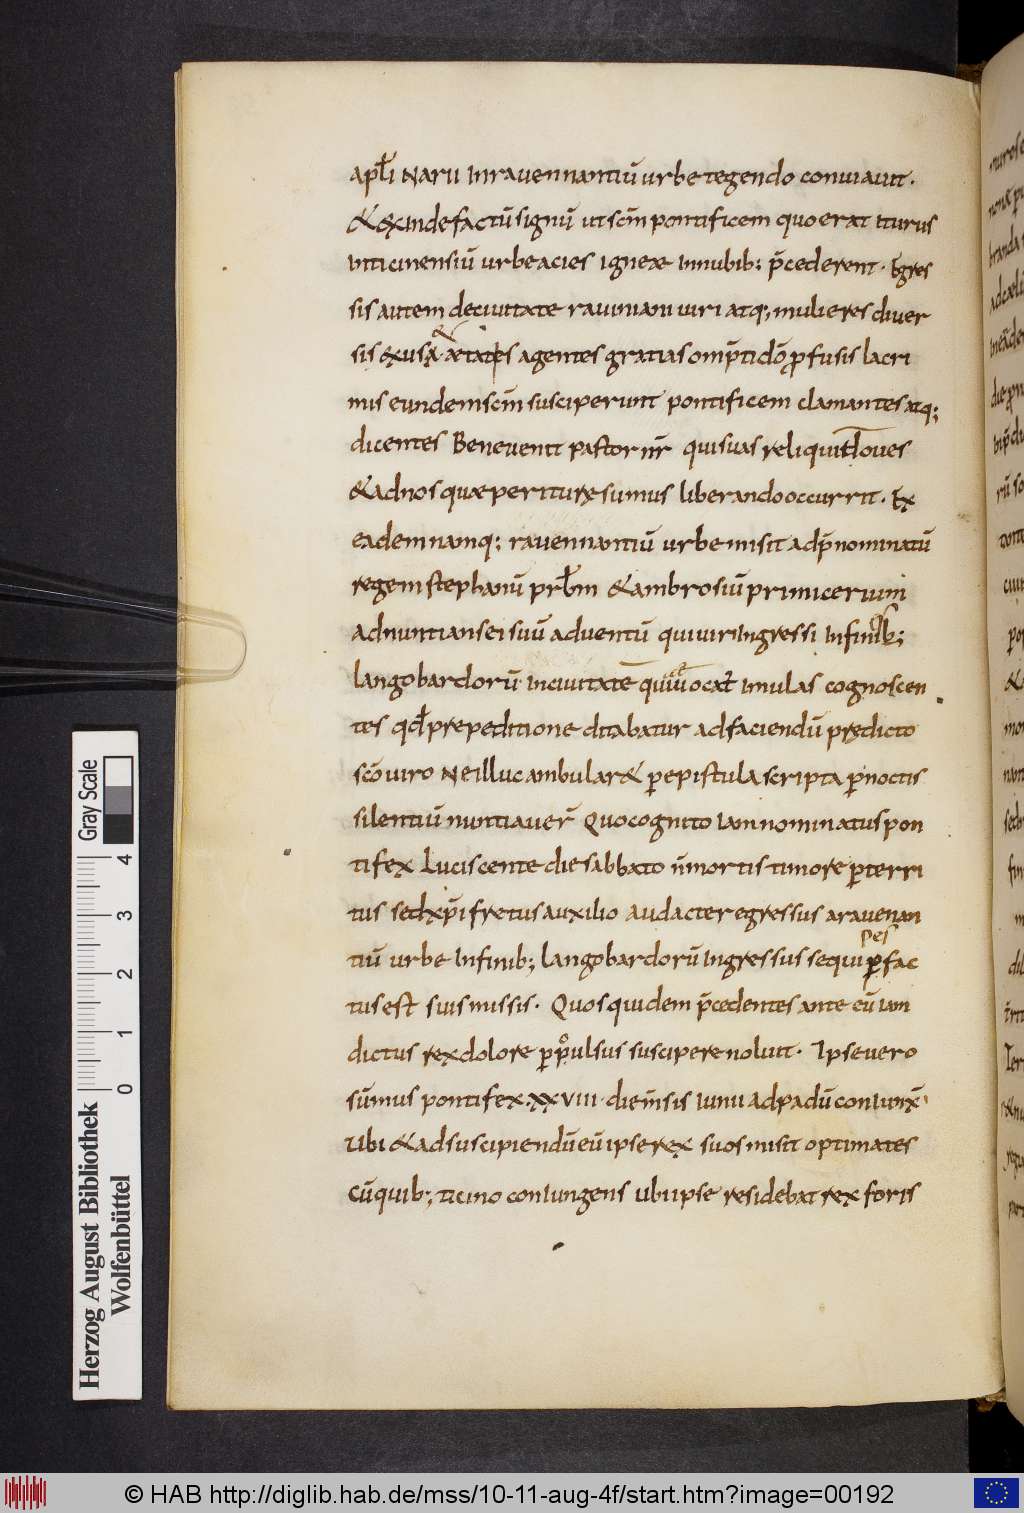 apłi Narii Inravennantiū urbe tegendo conviavit.
& exinde factū signū ut scm̄ pontificem quo erat iturus
in ticinensiū urbe acies igneæ in nubib; p̄cederent. Egres
sis autem de civitate raviniani viri atq; mulieres diver
sis sexus & ætates agentes gratias omp̄ti dō profusis lacri
mis eundem scm̄ susciperunt pontificem clamantes atq;
dicentes Benevenit pastor nr̄ qui suas reliquit oves
& ad nos quæ perituræ sumus liberando occurrit. Ex
eadem namq; ravennantiū urbe misit ad p̄nominatū
regem stephanū prb̄m & ambrosiū primicerium
adnuntians ei suū adventū qui viri Ingressi Infinib;
langobardorū in civitate qui vocat imulas cognoscen
tes qd̄ prepeditione ditabatur ad faciendū predicto
scō viro Ne illuc ambular& p epistula scripta p noctis
silentiū nuntiaver̄ Quo cognito iam nominatus pon
tifex Luciscente die sabbato n̄ mortis timore pterri
tus sed xp̄i fretus auxilio audacter egressus a ravenan
tiū urbe Infinib; langobardorū Ingressus sequi
pes
p fac
tus est suis missis. Quos quidem p̄cedentes ante eū iam
dictus rex dolore ppulsus suscipere noluit. Ipse vero
sūmus pontifex. xxviii. die m̄sis iunii ad padū coniunx̄
Ubi & ad suscipiendū eū ipse rex suos misit optimates
Cū quib; ticino coniungens ubi ipse residebat rex foris
Gray Scale
4
3
2
1
0
Herzog August Bibliothek
Wolfenbüttel
© HAB http://diglib.hab.de/mss/10-11-aug-4f/start.htm?image=00192